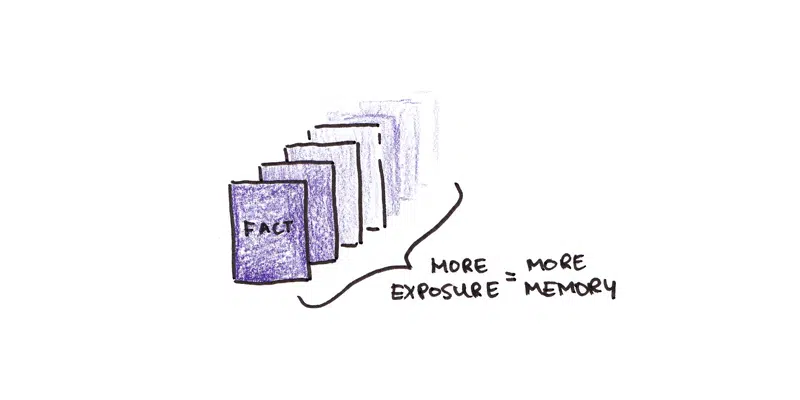 FACT
MORE
EXPOSURE
=
MORE
MEMORY